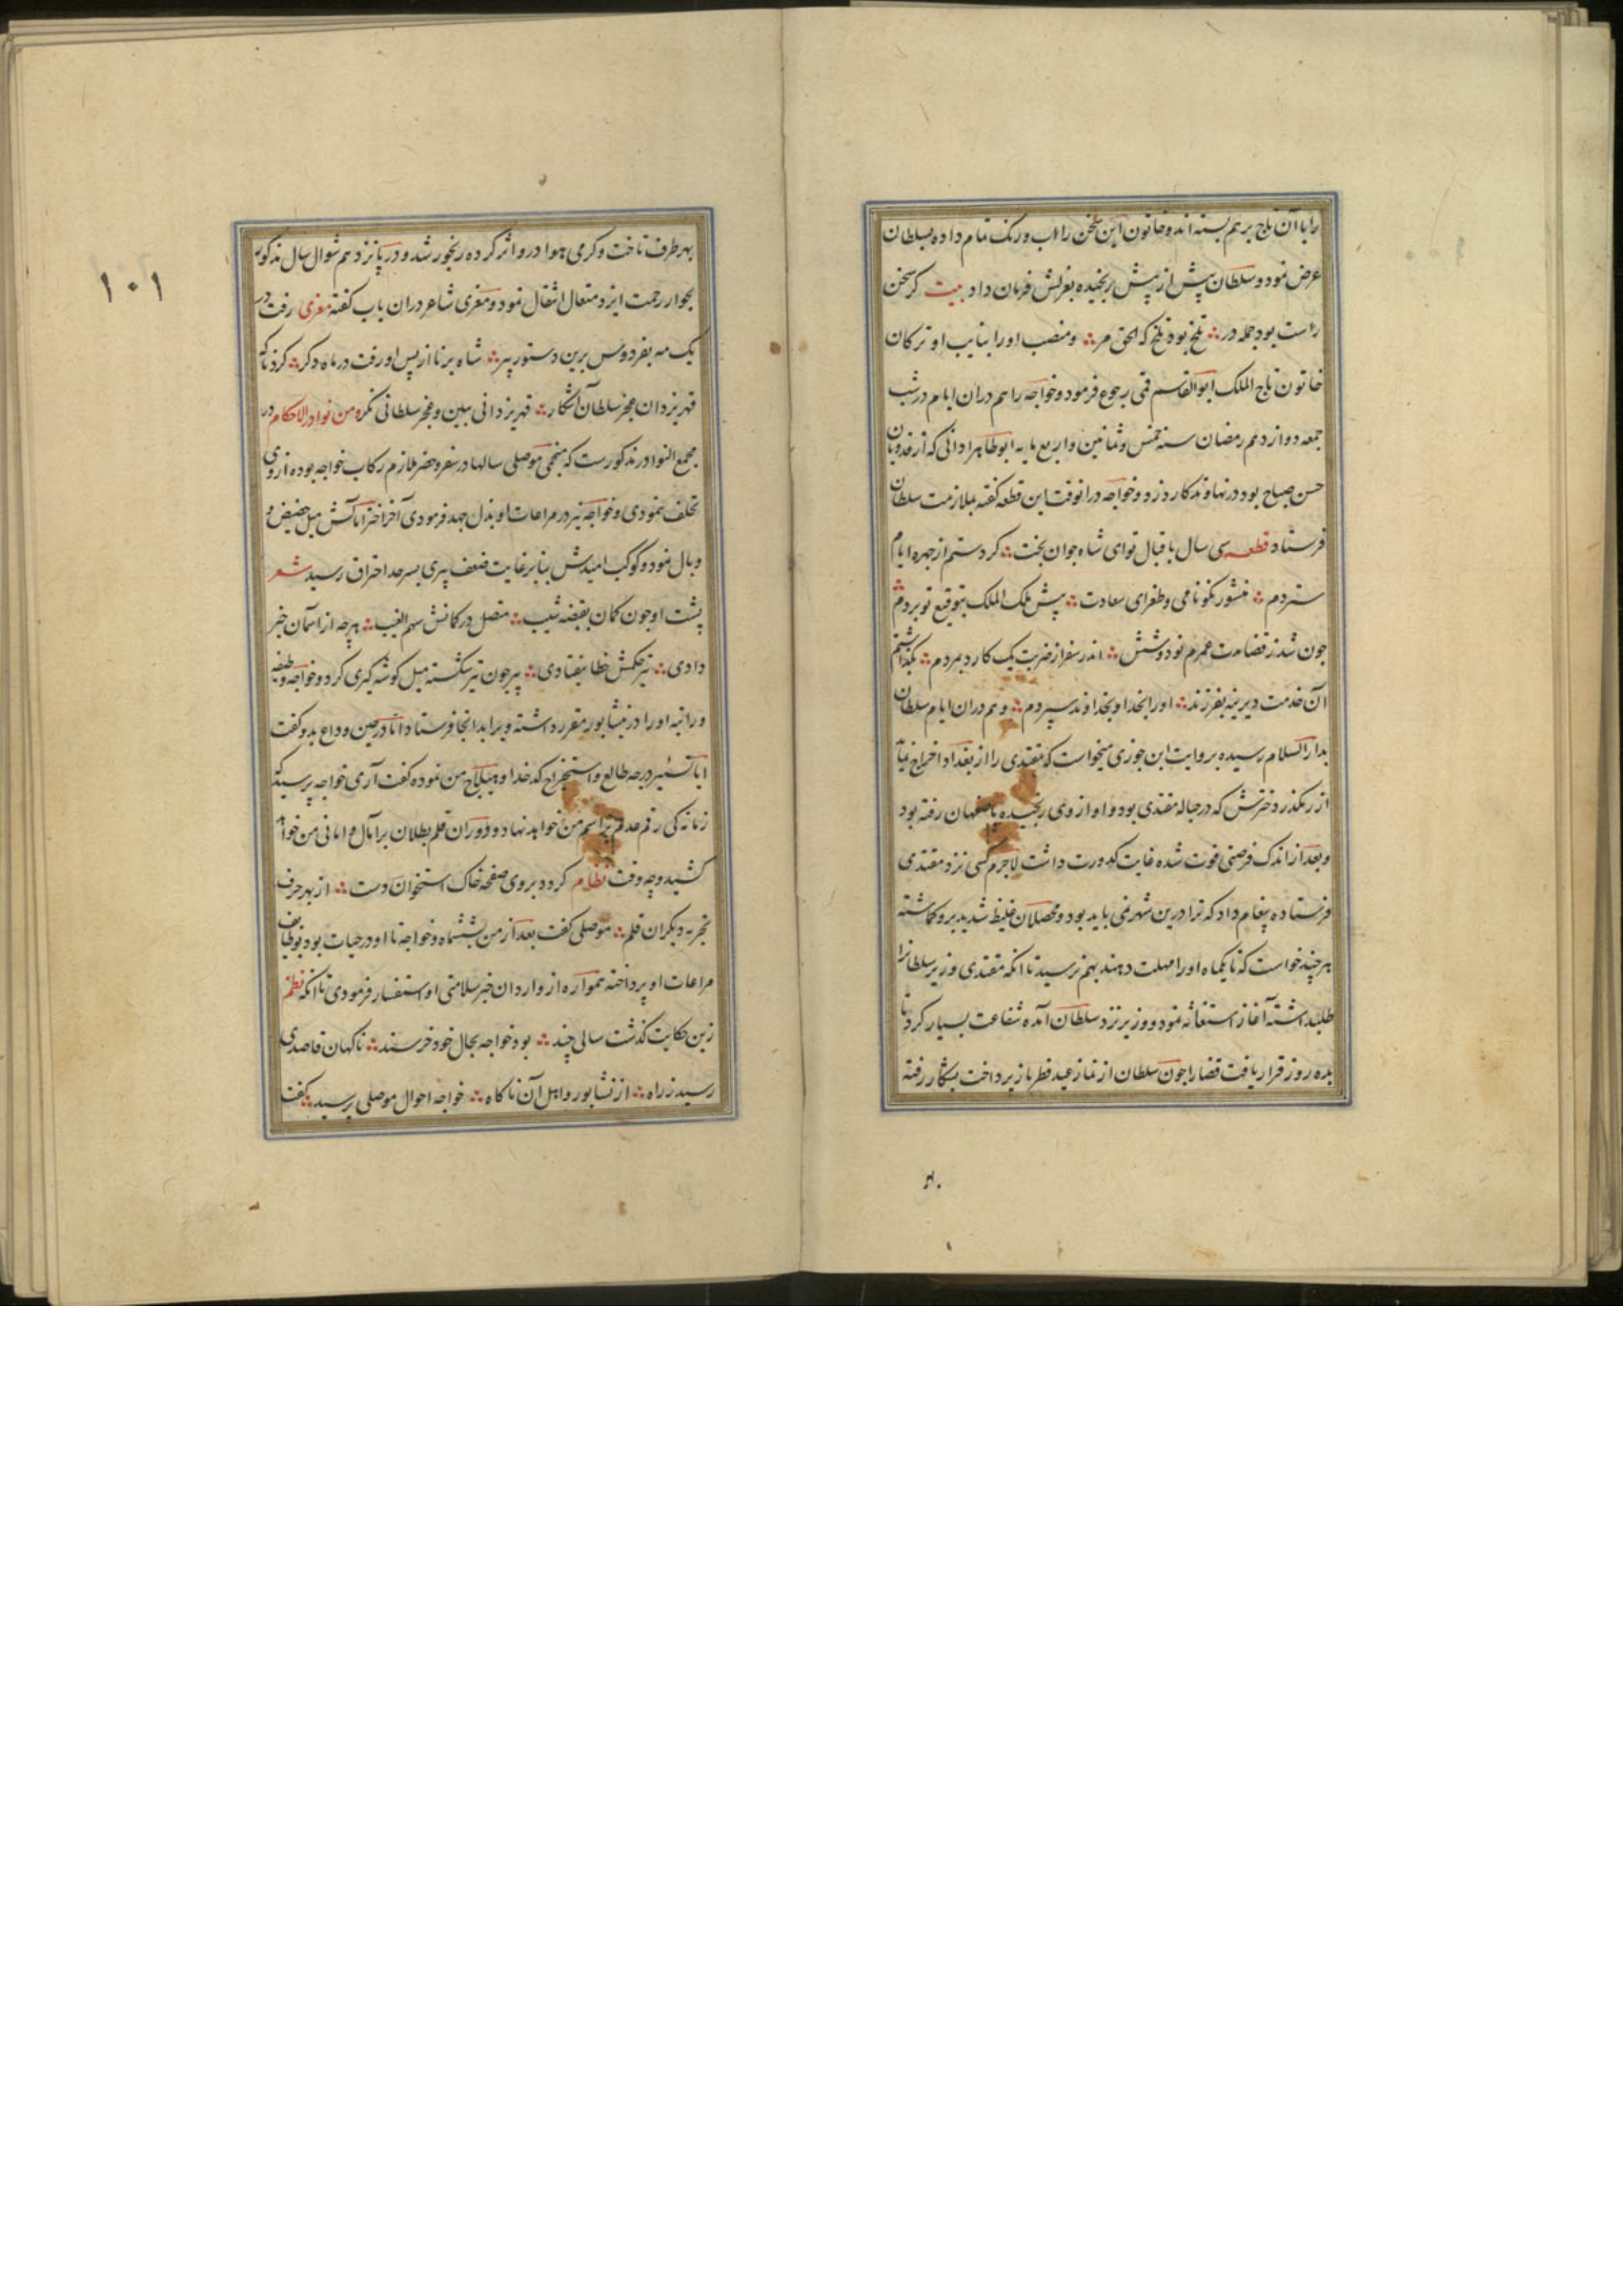 را با آن تاج بر هم بسته‌اند خاتون این سخن را اب و رنک تمام داده بسلطان
عرض نمود و سلطان پیش از پیش رنجیده بعزلش فرمان داد بیت کر سخن
راست بود جمله در ∴ تلخ بود تلخ که الحق مر ∴ و منصب او را بنایب او ترکان
خاتون تاج الملک ابو القاسم قمی رجوع فرمود و خواجه را هم دران ایام در شب
جمعه دوازدهم رمضان سنه خمس و ثمانین و اربع مایه ابو طاهر ادانی که از فدویان
حسن صباح بود در نهاوند کارد زد و خواجه در انوقت این قطعه کفته بملازمت سلطان
فرستاد قطعه سی سال باقبال تو ای شاه جوان بخت ∴ کرد ستم از چهره ایام
ستردم ∴ منشور نکونامی و طغرای سعادت ∴ پیش ملک الملک بتوقیع تو بردم ∴
چون شد ز قضا مدت عمرم نود و شش ∴ اندر سفر از ضربت یک کارد بمردم ∴ بکذاشتم
آن خدمت دیرینه بفرزند ∴ او را بخدا و بخداوند سپردم ∴ و هم دران ایام سلطان
بدار السلام رسیده بروایت ابن جوزی میخواست که مقتدی را از بغداد اخراج نماید
از رهکذر دخترش که در حباله مقتدی بود و او از وی رنجیده باصفهان رفته بود
و بعد از اندک فرصتی فوت شده غایت کدورت داشت لاجرم کسی نزد مقتدی
فرستاده پیغام داد که ترا درین شهر نمی باید بود و محصلان غلیظ شدید برو کماشته
هر چند خواست که تا یکماه او را مهلت دهند بهم نرسید تا انکه مقتدی وزیر سلطانرا
طلبداشته آغاز استغاثه نمود و وزیر نزد سلطان آمده شفاعت بسیار کرد تا
بده روز قرار یافت قضا را جون سلطان از نماز عید فطر باز پرداخت بشکار رفته
بهر
۱۰۱
بهر طرف تاخت و کرمی هوا در و اثر کرده رنجور شد و در پانزدهم شوال سال مذکور
بجوار رحمت ایزد متعال انتقال نمود و معزی شاعر دران باب کفته معزی رفت در
یک مه بفردوس برین دستور پیر ∴ شاه برنا از پس او رفت در ماه دکر ∴ کرد ناکه
قهر یزدان عجز سلطان آشکار ∴ قهر یزدانی ببین و عجز سلطانی نکر من نوادر الاحکام در
مجمع النوادر مذکورست که منجمی موصلی سالها در سفر و حضر ملازم رکاب خواجه بوده از وی
تخلف ننمودی و خواجه نیز در مراعات او بذل جهد فرمودی آخر اختر اماکش میل حضیض و
وبال نمود و کوکب امیدش بنابر غایت ضعف پیری بسرحد احتراق رسید شعر
پشت او جون کمان بقبضه شیب ∴ متصل در کمانش سهم الغیب ∴ هر چه از اسمان خبر
دادی ∴ تیر حکمش خطا نیفتادی ∴ پیر جون تیر شکسته میل کوشه کیری کرد و خواجه وظیفه
و راتبه او را در نیشابور مقرر داشته ویرا بدانجا فرستاد اما در حین وداع بدو کفت
ایا تسییر درجه طالع و استخراج کدخدا و هیلاج من نموده کفت آری خواجه پرسید که
زمانه کی رقم عدم بر اسم من خواهد نهاد و دوران قلم بطلان بر آمال و امانی من خواهد
کشید و چه وقت نظام کردد بر وی صفحه خاک استخوان دست ∴ از بهر حرف
تجربه دیکران قلم ∴ موصلی کفت بعد از من بششماه و خواجه تا او در حیات بود بوظایف
مراعات او پرداخته همواره از واردان خبر سلامتی او استفسار فرمودی تا انکه نظم
زین حکایت کذشت سالی چند ∴ بود خواجه بحال خود خرسند ∴ ناکهان قاصدی
رسید ز راه ∴ از نشابور و اهل آن ناکاه ∴ خواجه احوال موصلی پرسید ∴ کفت